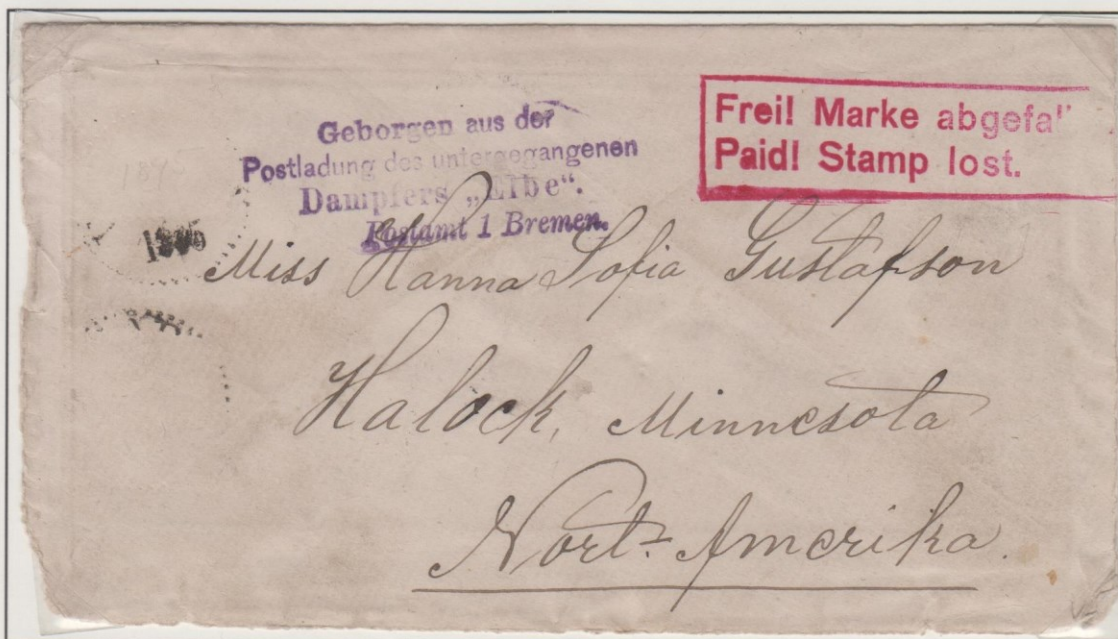 Geborgen aus der
Postladung des untergegangenen
Dampfers „Elbe“.
Postamt 1 Bremen.
Frei! Marke abgefal
Paid! Stamp lost.
Miss Hanna Sofia Gustafson
Halock, Minnesota
Nort-Amerika.